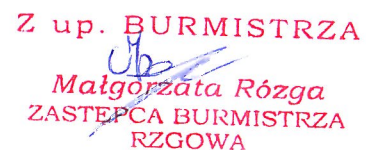 Z up. BURMISTRZA
Małgorzata Rózga
ZASTĘPCA BURMISTRZA
RZGOWA